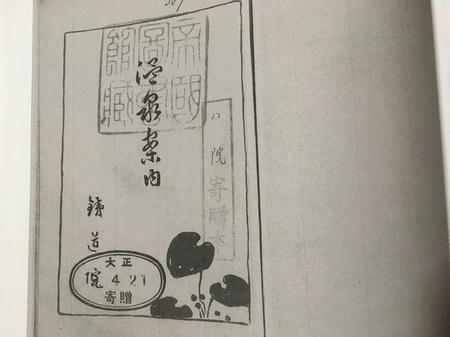 帝國
圖書
館藏
温泉案内
院寄贈本
鐵道院
大正
4 21
寄贈